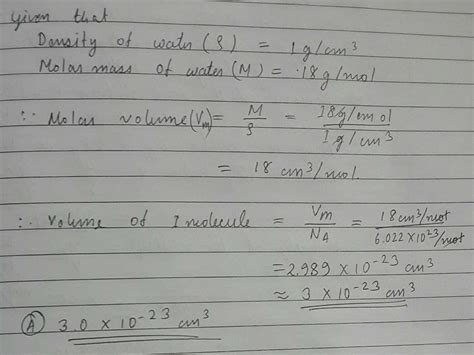 Given that
Density of water (ρ) = 1 g/cm³
Molar mass of water (M) = 18 g/mol
∵ Molar volume (Vm) = M/ρ = 18g/mol / 1 g/cm³
= 18 cm³/mol.
∴ Volume of 1 molecule = Vm/NA = 18 cm³/mol / 6.022 × 10²³/mol
= 2.989 × 10⁻²³ cm³
≈ 3 × 10⁻²³ cm³
(A) 3.0 × 10⁻²³ cm³